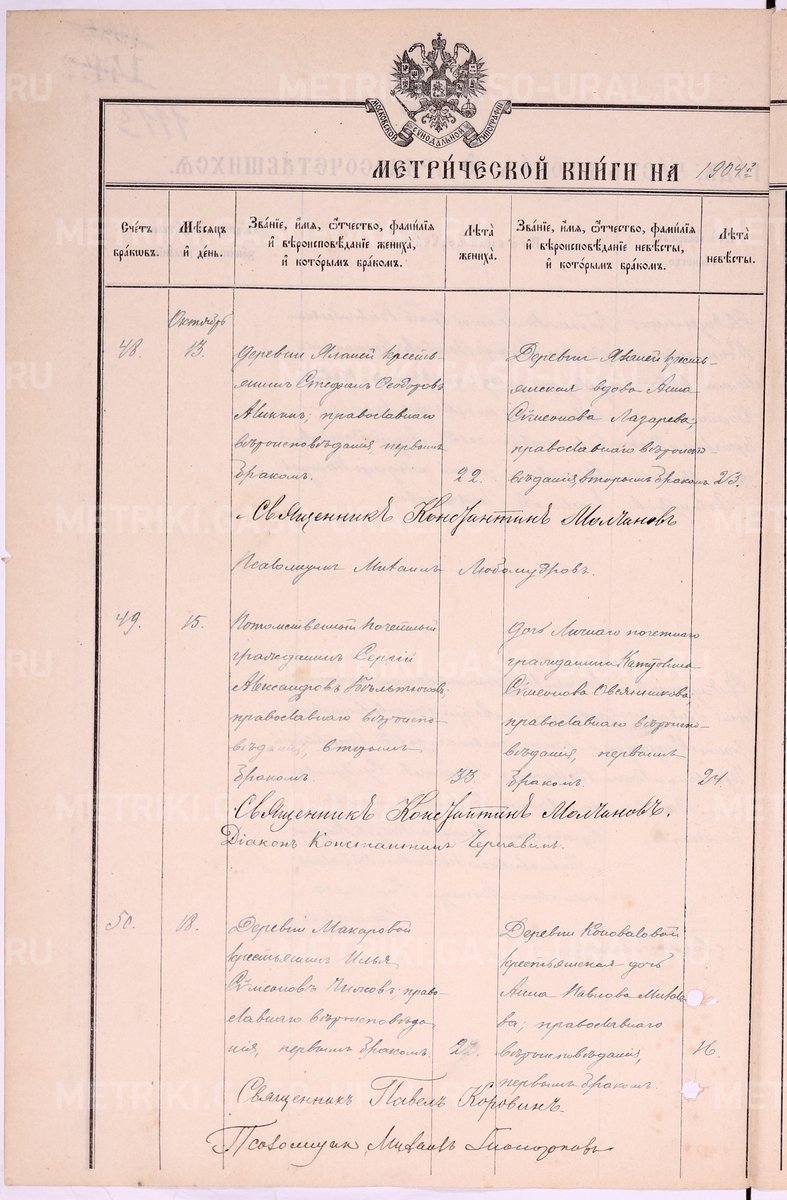 МОСКОВСКОЙ СѴНОДАЛЬНОЙ ТИПОГРАФІИ
МЕТРИ́ЧЕСКОЙ КНИ́ГИ НА 1904 г.
Сче́тъ бра́кωвъ.
Мѣ́сяцъ и҆ де́нь.
Зва́нїе, и҆́мя, ѻ҆́тчество, фами́лїя и҆ вѣроисповѣ́данїе жениха̀, и҆ кото́рымъ бра́комъ.
Лѣта̀ жениха̀.
Зва́нїе, и҆́мя, ѻ҆́тчество, фами́лїя и҆ вѣроисповѣ́данїе невѣ́сты, и҆ кото́рымъ бра́комъ.
Лѣта̀ невѣ́сты.
Октябрь
48.
13.
Деревни Яланей кресть-
янинъ Стефанъ Ѳеодоровъ
православнаго
вѣроисповѣданія, первымъ
бракомъ.
22.
Деревни Яланей кресть-
янская вдова Анна
Сѵмеонова Лазарева;
православнаго вѣроиспо-
вѣданія, вторымъ бракомъ.
23.
Священникъ Константинъ Молчановъ
Псаломщикъ Михаилъ Любомудровъ.
49.
15.
Потомственный почетный
гражданинъ Сергій
Александровъ
православнаго вѣроиспо-
вѣданія, вторымъ
бракомъ.
33.
Дочь личнаго почетнаго
гражданина
Сѵмеонова Овсянникова
православнаго вѣроиспо-
вѣданія, первымъ
бракомъ.
24.
Священникъ Константинъ Молчановъ.
Діаконъ Константинъ Чернавинъ.
50.
18.
Деревни Макаровой
крестьянинъ Илья
Сѵмеоновъ право-
славнаго вѣроисповѣда-
нія, первымъ бракомъ.
22.
Деревни Коноваловой
крестьянская дочь
Анна Павлова
православнаго
вѣроисповѣданія,
первымъ бракомъ.
16.
Священникъ Павелъ Коровинъ.
Псаломщик Михаилъ